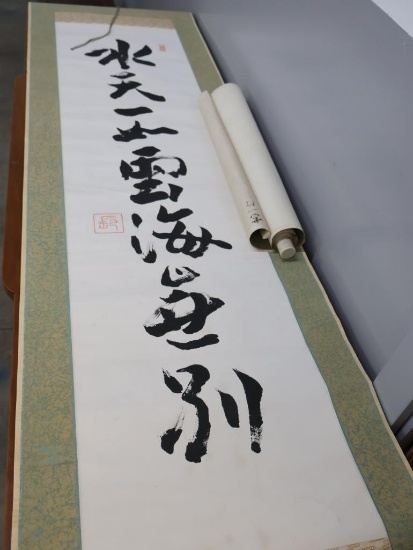 水天一如雲海無別